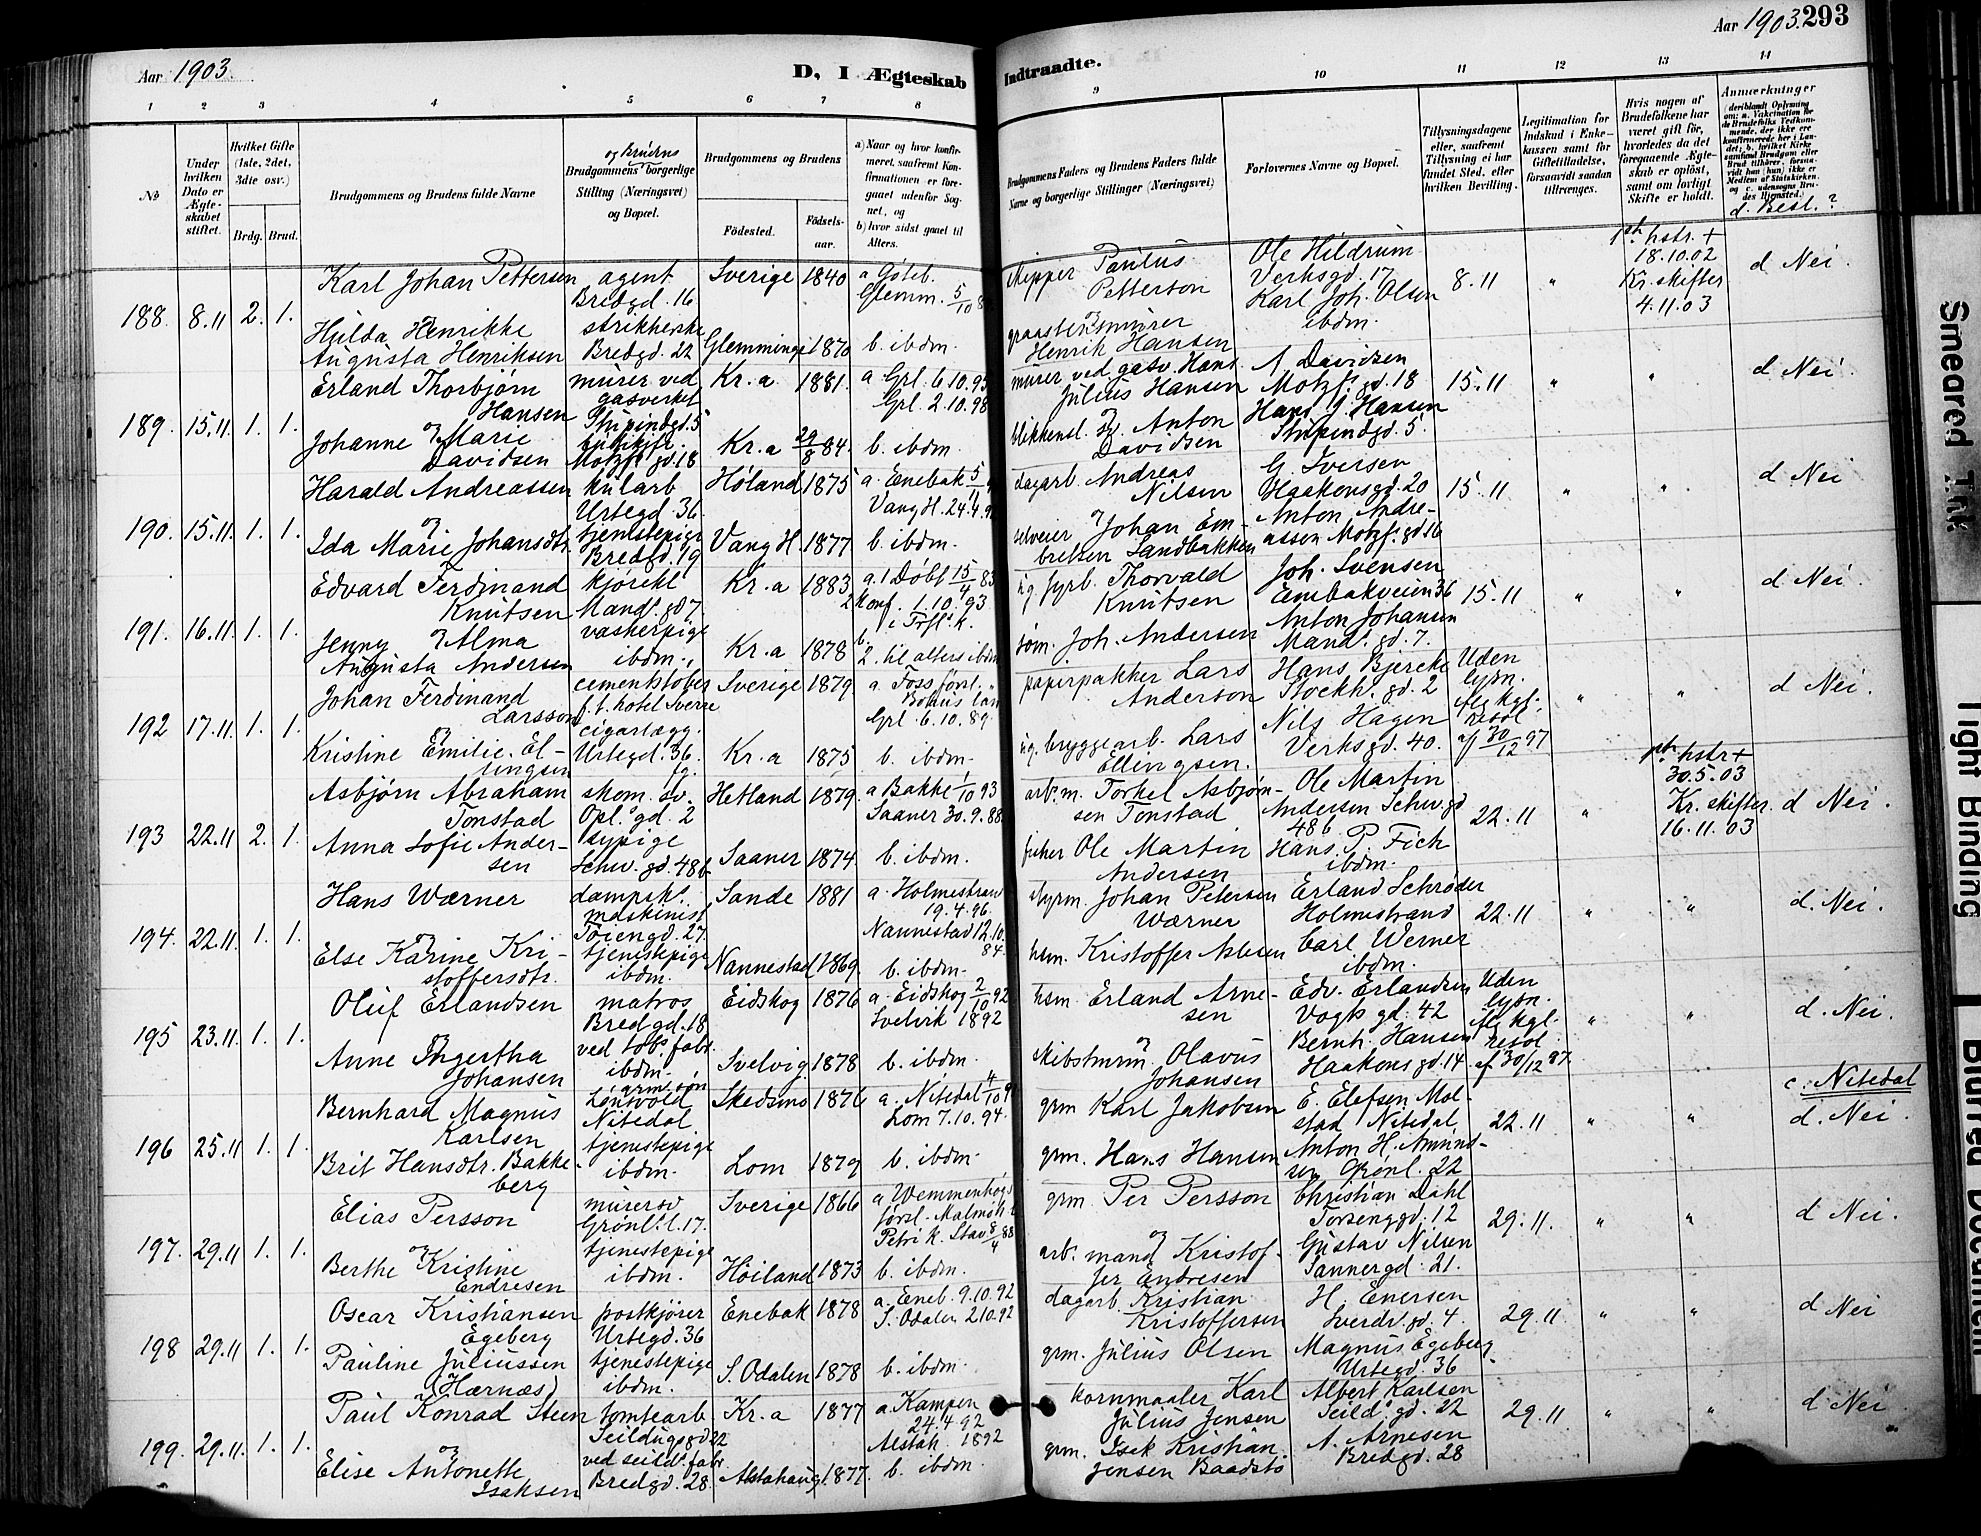 Aar 1903.
D, I Ægteskab
Indtraadte.
Aar 1903. 293
1 2 3 4 5 6 7 8
9 10 11 12 13 14
No
Under hvilken Dato er Ægteskabet stiftet.
Hvilket Gifte (1ste, 2det, 3die osv.)
Brdg. Brud.
Brudgommens og Brudens fulde Navne
og Brudens
Brudgommens borgerlige Stilling (Næringsvei) og Bopæl.
Brudgommens og Brudens
Fødested.
Fødselsaar.
a) Naar og hvor konfirmeret, saafremt Konfirmationen er foregaaet udenfor Sognet, og
b) hvor sidst gaaet til Alters.
Brudgommens Faders og Brudens Faders fulde Navne og borgerlige Stillinger (Næringsvei)
Forlovernes Navne og Bopæl.
Tillysningsdagene eller, saafremt Tillysning ei har fundet Sted, efter hvilken Bevilling.
Legitimation for Indskud i Enkekassen samt for Giftetilladelse, forsaavidt saadan tiltrænges.
Hvis nogen af Brudefolkene har været gift før, hvorledes da det foregaaende Ægteskab er opløst, samt om lovligt Skifte er holdt.
Anmærkninger
d. Besl.?
188. 8.11 2. 1.
Karl Johan Pettersen
agent
Bredgd. 16
Sverige 1840
a Göteb.
Glemm. 5/10
skipper Paulus
Petterson
Ole Hildrum
Verksgd. 17
Karl Joh. Olsen
ibdm.
8.11 "
1ste hstr. +
18.10.02
Kr. skifter
4.11.03
d Nei.
og
Hulda Henrikke
Augusta Henriksen
strikkerske
Bredgd. 22
Glemminge 1870
b. ibdm.
graastensmurer
Henrik Hansen
189. 15.11. 1. 1.
Erland Thorbjørn
Hansen
murer ved
gasverket
Stupindgd. 5
Kr.a 1881.
a Grl. 6.10.95
Grl. 2.10.98
murer ved gasv. Hans
Julius Hansen
A Davidsen
Motzf. gd. 18
Hans J. Hansen
Stupindgd. 5.
15.11 " "
d Nei
og
Johanne Marie
Davidsen
Motzf. gd. 18
Kr.a 29/8 84.
b. ibdm.
blikkensl. Anton
Davidsen
190. 15.11. 1. 1.
Harald Andreassen
kularb
Urtegd. 36.
Høland 1875
a. Enebak 5/
Vang H. 24.4.9
dagarb. Andreas
Nilsen
G. Iversen
Haakonsgd. 20
Anton Andreassen
Motzf. gd 16
15.11 " "
d Nei
og
Ida Marie Johansdtr.
tjenestepige
Bredgd. 19
Vang H. 1877
b. ibdm.
selveier Johan Embretsen
Sandbakken
191. 16.11. 1. 1.
Edvard Ferdinand
Knutsen
kjørekl
Mands. gd 7.
Kr.a 1883
a. 1 Døbt 15/4 83
2 Konf. 1.10.93
i Frfls k.
ug fyrb. Thorvald
Knutsen
Joh. Svensen
Enebakveien 36
Anton Johansen
Mands. gd. 7.
15.11 " "
d Nei.
og
Jenny Alma
Augusta Andersen
vaskerpige
ibdm.
Kr.a 1878
b.
2. til alters ibdm
søm. Joh. Andersen
192 17.11. 1. 1.
Johan Ferdinand
Larsson
cementstøber
f. t. hotel Sverre
Sverige 1879
a. Foss førsl.
Bohus län
Grl. 6.10.89
papirpakker Lars
Anderson
Hans Bjercke
Stockh. gd. 2
Nils Hagen
Verksgd. 40.
Uden
lysn.
flg kgl.
resol
af 30/12 97
" "
d Nei.
og
Kristine Emilie Ellingsen
cigarlægg.
Urtegd. 36.
Kr.a 1875
b. ibdm.
ug. bryggearb. Lars
Ellingsen.
193 22.11 2. 1.
Asbjørn Abraham
Tonstad
skom. sv.
Opl. gd. 2
Hetland 1879.
a Bakke 1/10 93
Saaner 30.9.88
arb. m. Torkel Asbjørnsen
Tonstad
Ole Martin
Andersen Schw. gd
48b
Hans P. Fich
ibdm.
22.11 "
1ste hstr +
30.5.03
Kr. skifter
16.11.03
d Nei.
Anna Sofie Andersen
sypige
Schw. gd. 48b
Saaner 1874.
b. ibdm.
fisker Ole Martin
Andersen
194. 22.11. 1. 1.
Hans Wærner
dampsk.
maskinist
Tøiengd. 27.
Sande 1881
a. Holmestrand
19.4.96.
Nannestad 12.10.84
styrm. Johan Petersen
Wærner
Erland Schrøder
Holmestrand
Carl Werner
ibdm.
22.11 " "
d. Nei.
og
Else Karine Kristoffersdtr.
tjenestepige
ibdm.
Nannestad 1869.
b. ibdm.
hsm. Kristoffer Aslesen
195 23.11. 1. 1.
Oluf Erlandsen
matros
Bredgd. 18
Eidskog 1876
a. Eidskog 2/10 92
Svelvik 1892
hsm Erland Arnesen
Edv. Erlandsen
Vogts gd. 42
Bernh. Hansen
Haakonsgd. 14
Uden
lysn.
flg kgl.
resol.
af 30/12 97
" "
d. Nei.
og
Anne Ingertha
Johansen
ved tobs. fabr.
ibdm.
Svelvig 1878
b. ibdm.
skibstmrm. Olavus
Johansen
196 25.11 1. 1.
Bernhard Magnus
Karlsen
Nitedal
Skedsmo 1876
a. Nitedal 4/10 9
Lom 7.10.94.
grm Karl Jakobsen
E. Elefsen Molstad
Nitedal
Anton H. Amundsen
Grønl. 22
22.11 " "
c. Nitedal
d. Nei.
Brit Hansdtr. Bakkeberg
tjenestepige
ibdm.
Lom 1879
b. ibdm.
grm. Hans Hansen
197. 29.11 1. 1.
Elias Persson
murersv
Grønl. l. 17.
Sverige 1866
a Wemmenhögs
førsl. Malmöh. l
Petri k. Stav 8/4 88
grm. Per Persson
Christian Dahl
Torsenggd. 12
Gustav Nilsen
Sannergd. 21.
29.11. " "
d Nei.
og
Berthe Kristine
Endresen
tjenestepige
ibdm.
Høiland 1873
b. ibdm.
arb. mand Kristoffer
Endresen
198 29.11 1. 1.
Oscar Kristiansen
Egeberg
postkjører
Urtegd. 36
Enebak 1878
a. Eneb. 9.10.92
S. Odalen 2.10.92
dagarb. Kristian
Kristoffersen
H. Enersen
Sverdr. gd. 4.
Magnus Egeberg
Urtegd. 36
29.11 " "
d Nei
Pauline Juliussen
(Hærnæs)
tjenestepige
ibdm.
S. Odalen 1878
b. ibdm.
grm. Julius Olsen
199. 29.11. 1. 1.
Paul Konrad Steen
tomtearb
Seildugsgd 22
Kr.a 1877
a Kampen
24.4.92
Alstah. 1892
kornmaaler Karl
Julius Jensen
Albert Karlsen
Seild. gd. 22
A. Arnesen
Bredgd. 28
29.11 " "
d Nei
og
Elise Antonette
Isaksen
ved seild. fabr.
Bredgd. 28
Alstahaug 1877.
b. ibdm.
grm. Isek Kristian
Jensen Baadstø
Smeared Ink
Tight Binding
Blurred Document